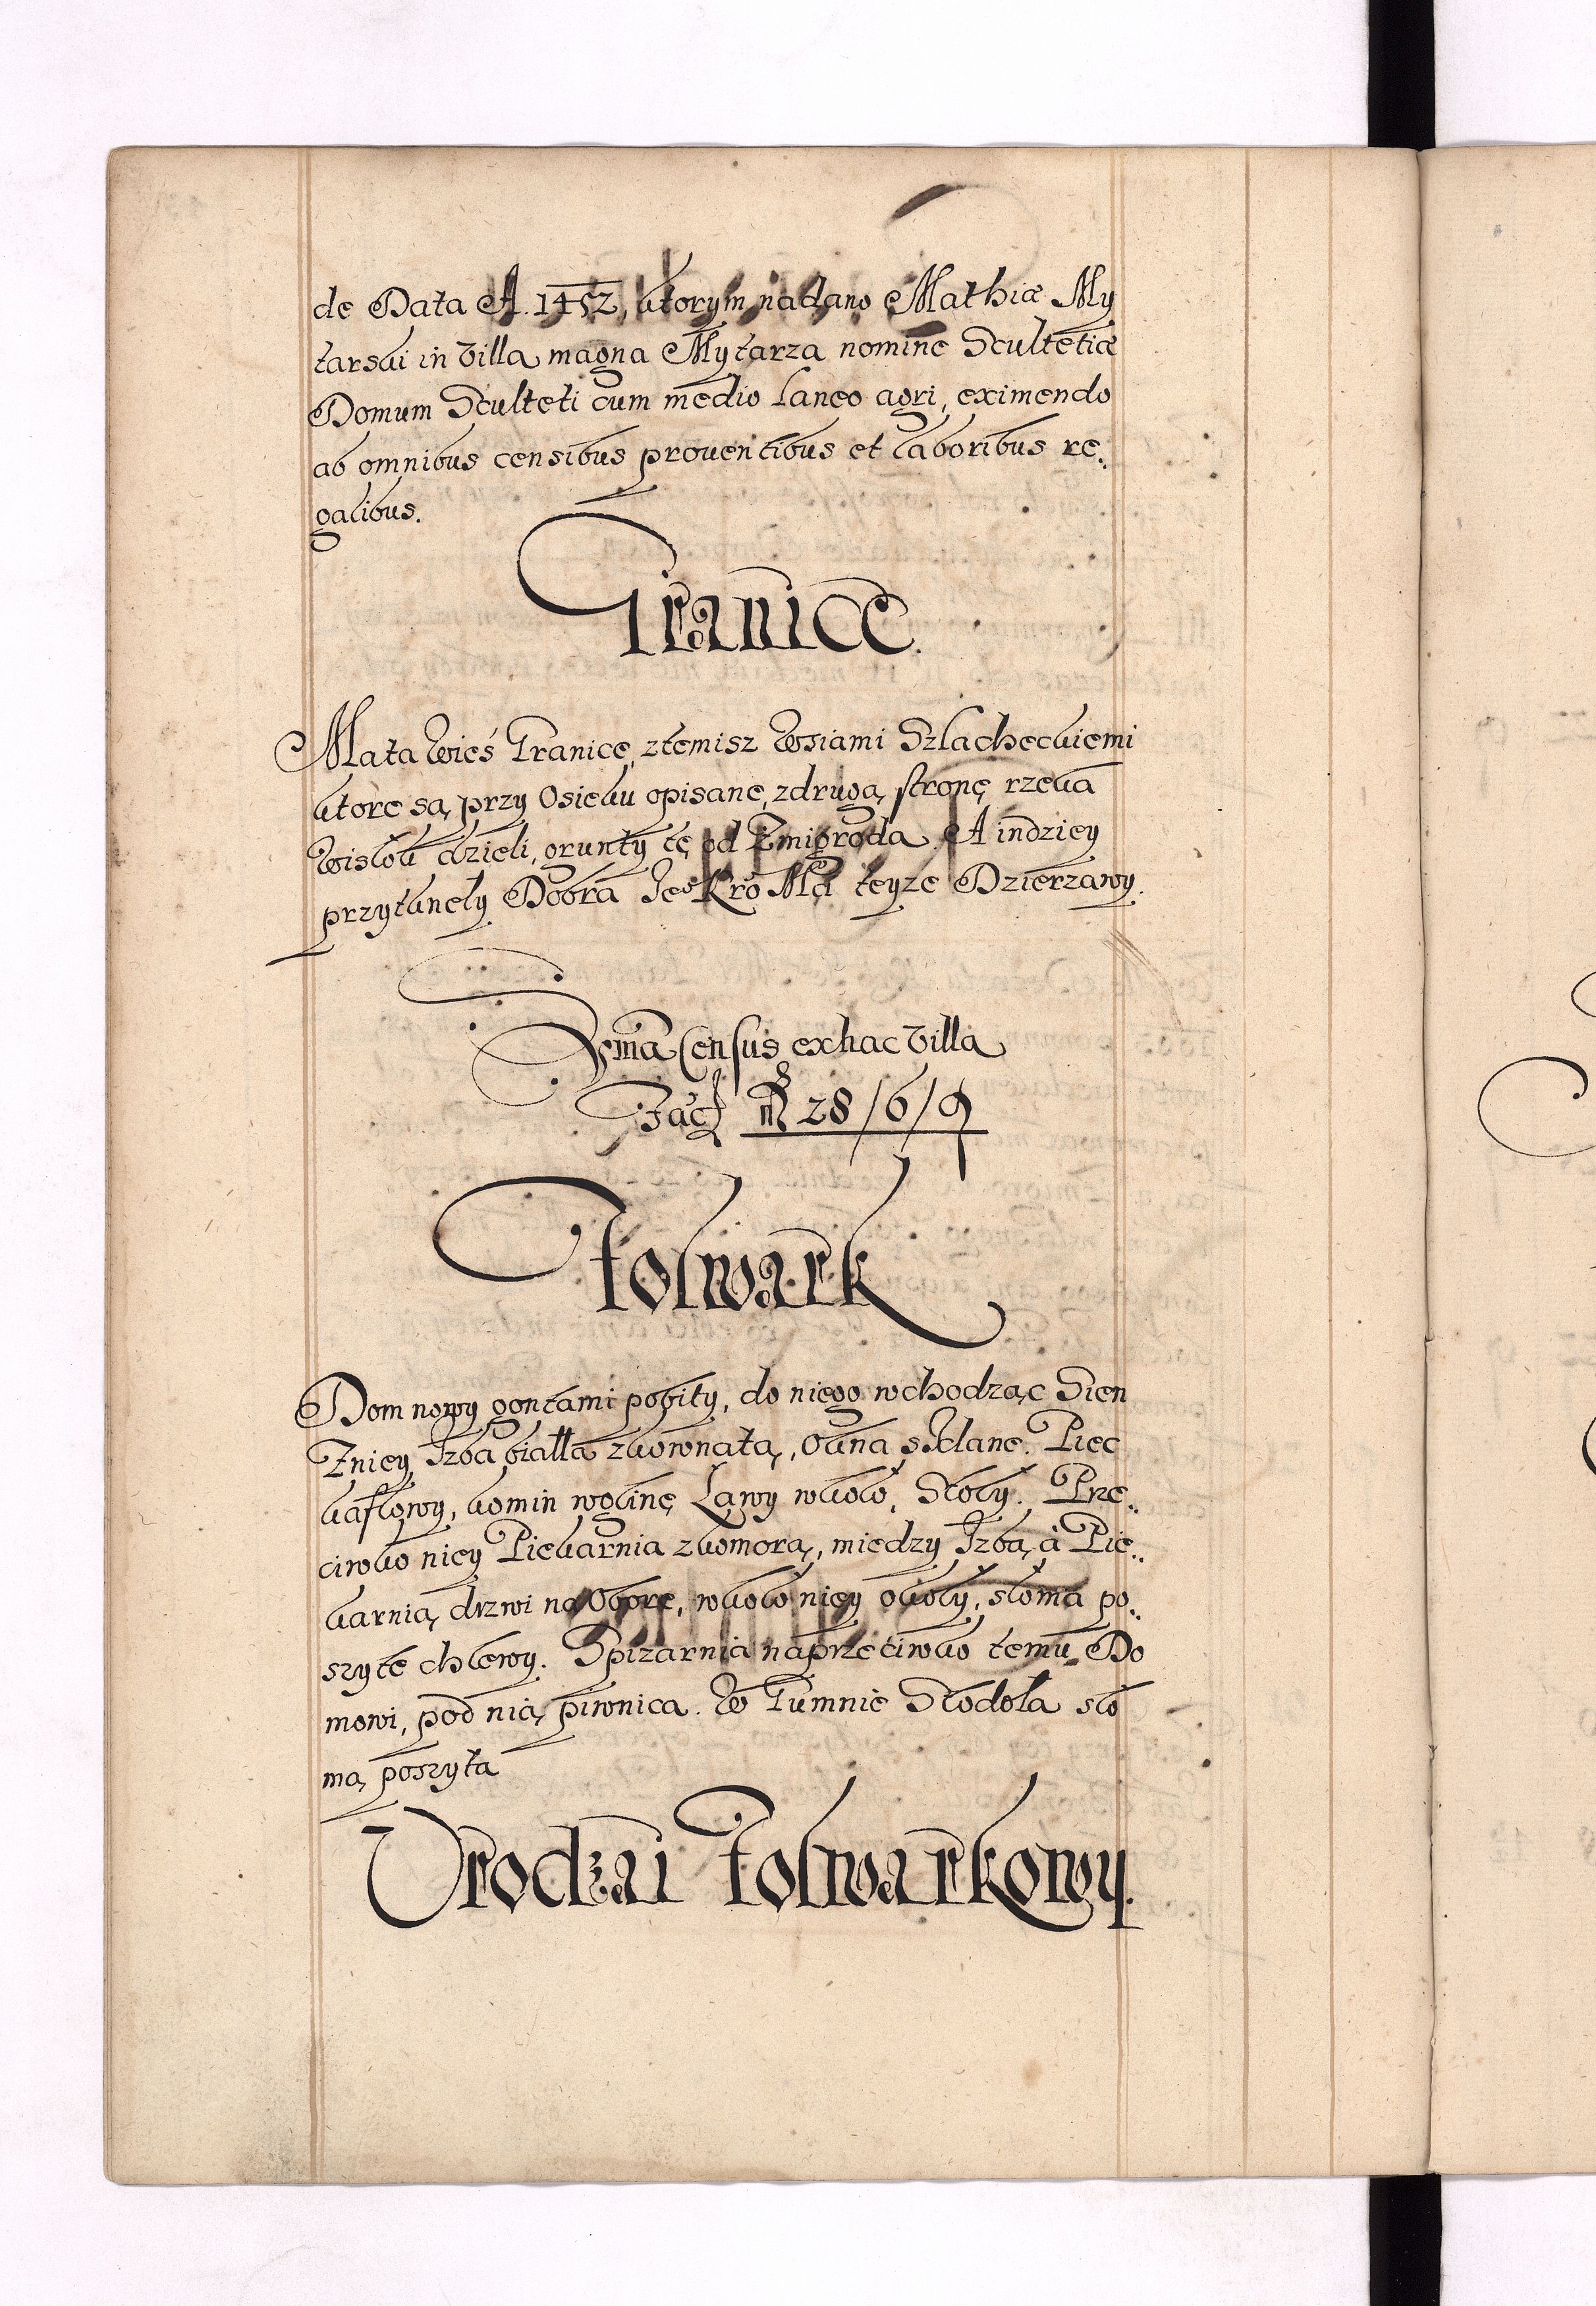 de Data A. 1452, ktorym nadano Mathiæ My
tarski in villa magna Mytarza nomine Scultetiæ
Domum Sculteti cum medio Laneo agri, eximendo
ab omnibus censibus prouentibus et laboribus re..
galibus.
Granice.
Mata Wieś Granice, ztemisz Wsiami Szlacheckiemi
ktore są przy Osieku opisane, zdrugą stronę rzeka
Wisłok dzieli, grunty te od Zmigroda. A indziey
przytkneły Dobra Jeo Kro Mći teyze Dzierzawy.
Sum̃a Census ex hac Villa
Fac̃ 28/6/9
Folwark
Dom nowy gontami pobity, do niego wchodząc Sien
Zniey Izba białla zkownatą, okna sklane. Piec
kaflowy, komin woline Ławy wkoło, Stoły. Prze..
ciwko niey Piekarnia zkomorą, miedzy Izbą à Pie..
karnią drzwi na Oborę, wkoło niey okoły, słomą po..
szyte chlewy. Spizarnia naprzeciwko temu Do
mowi, pod nią piwnica. W Gumnie Stodoła sło
mą poszyta
Vrodzai Folwarkowy.